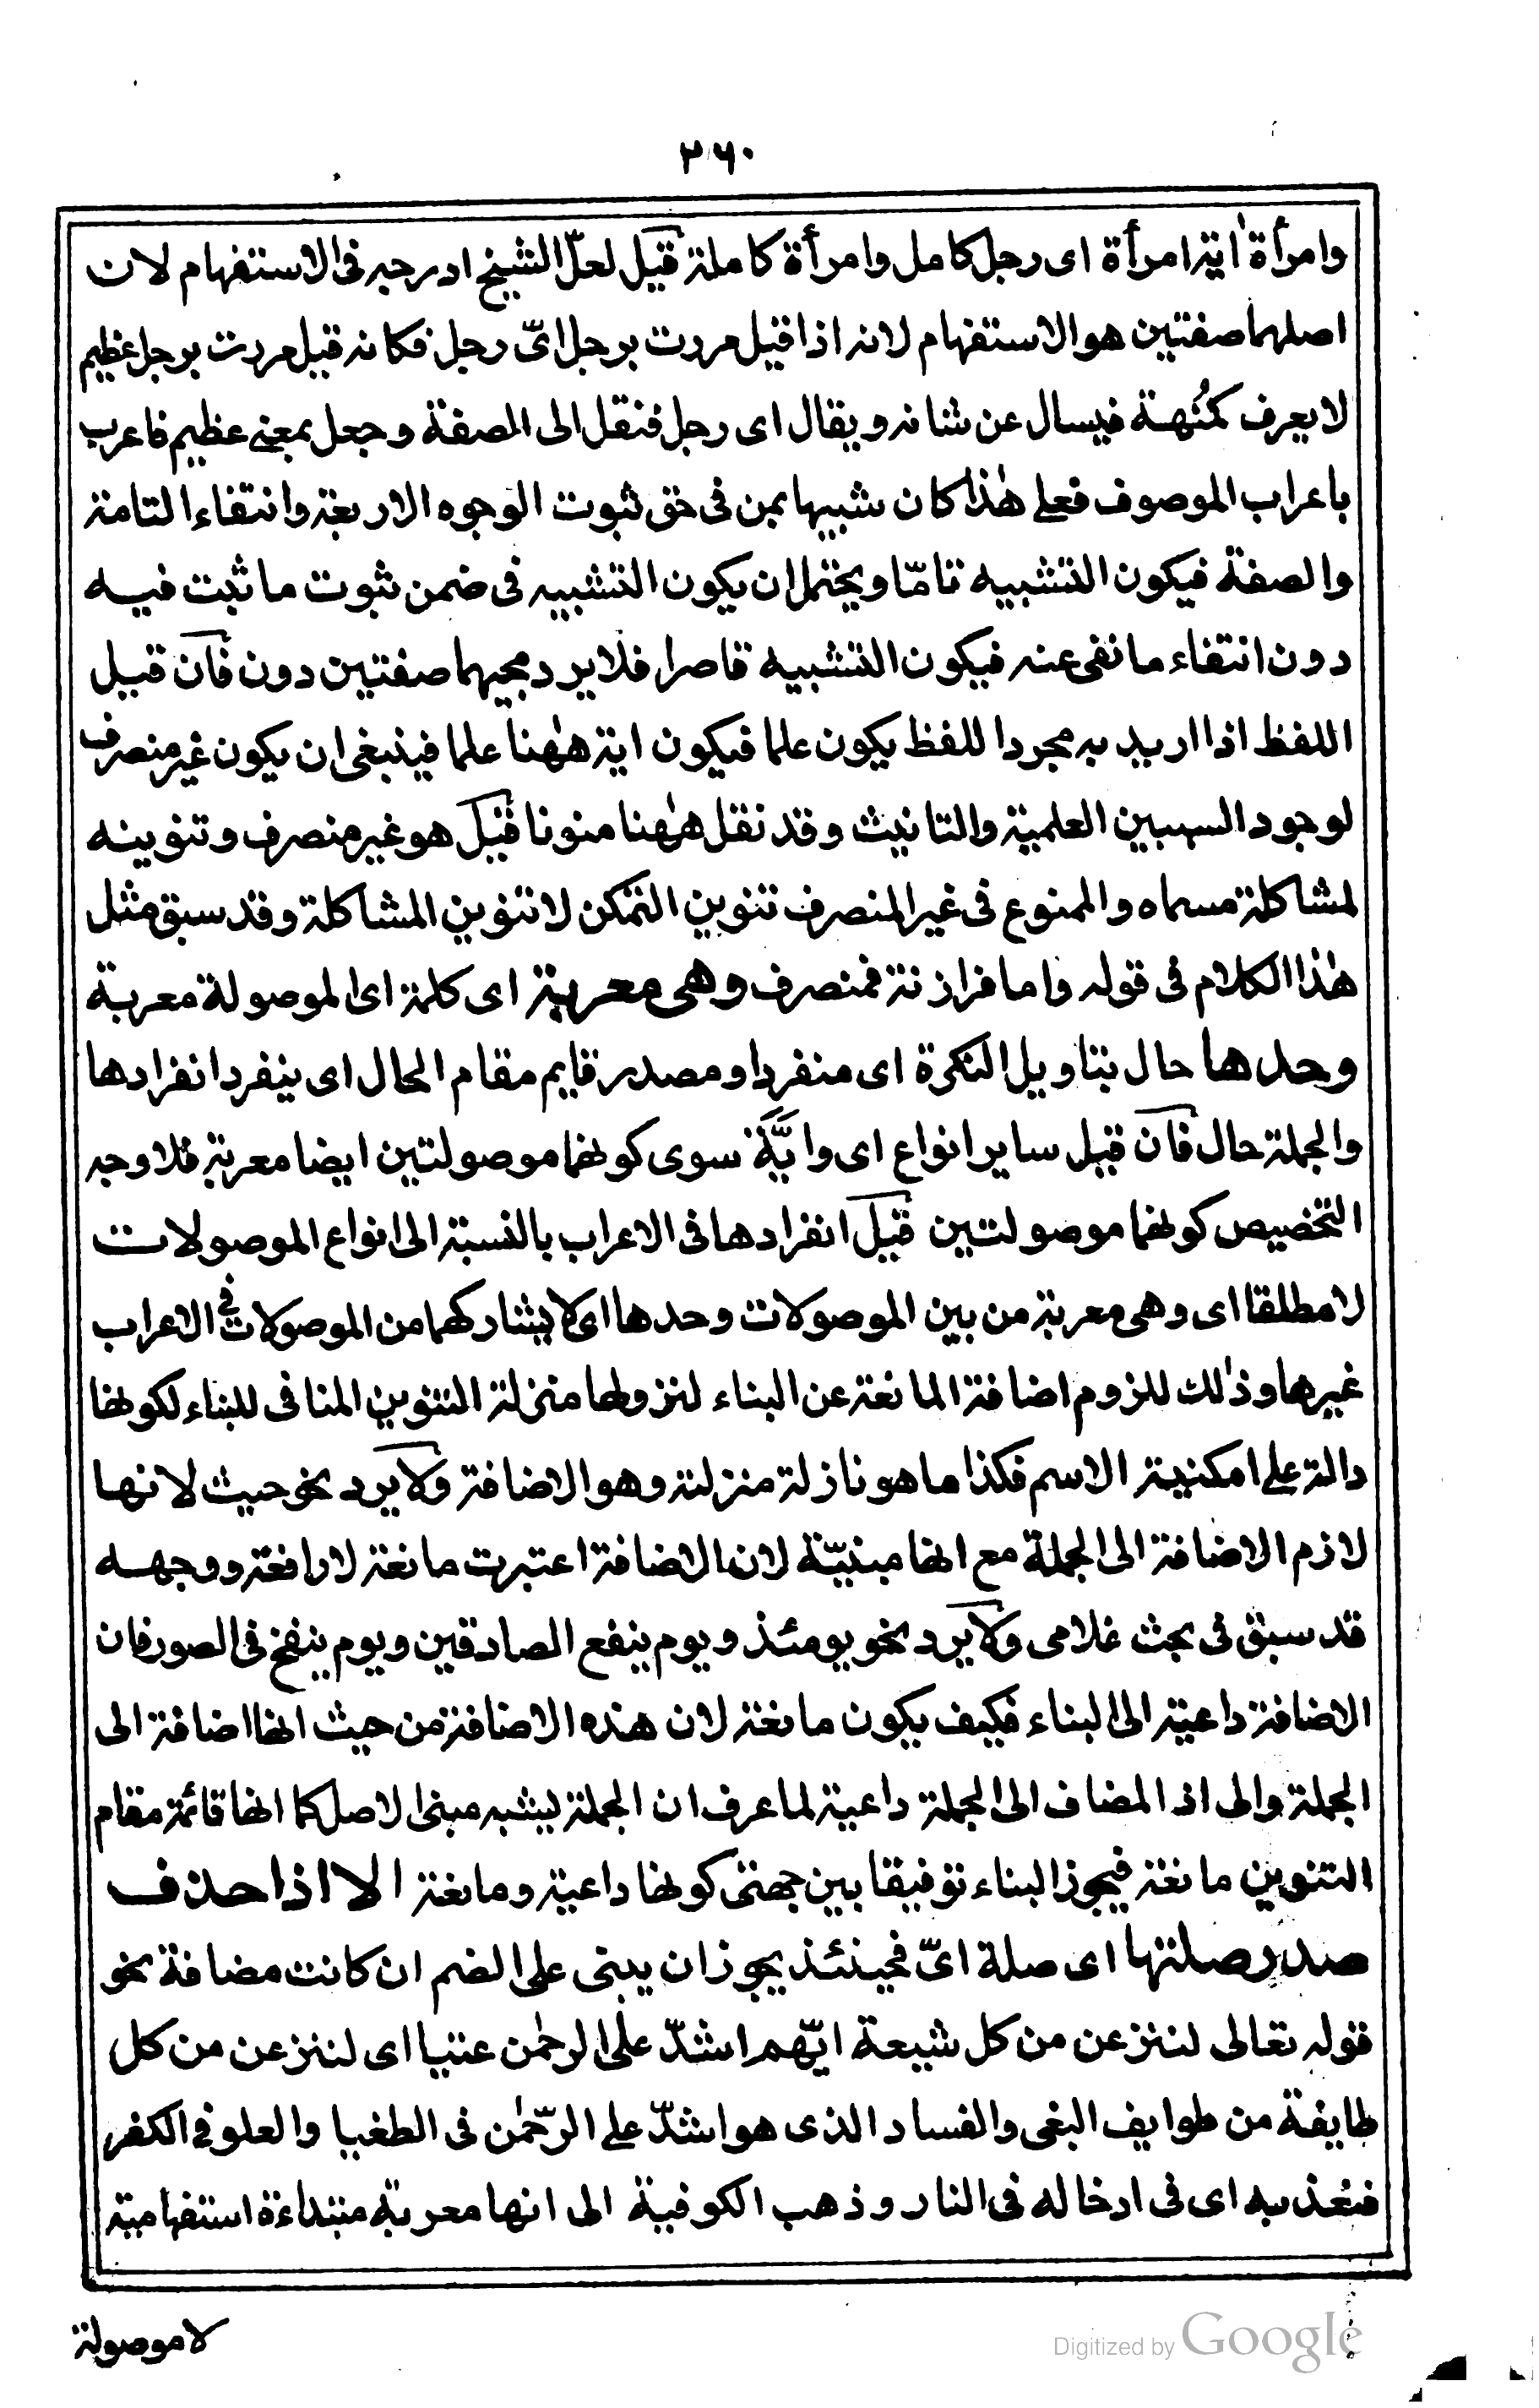 ٣٦٠
وامرأة اٰية امرأة اى رجل كامل وامرأة كاملة قيل لعلّ الشيخ ادرجه فى الاستفهام لان
اصلهما صفتين هو الاستفهام لانه اذا قيل مررت برجل اىّ رجل فكانه قيل مررت برجل عظيم
لا يعرف كنُهه فيسال عن شانه ويقال اى رجل فنقل الى الصفة وجعل بمعنے عظيم فاعرب
باعراب الموصوف فعلے هٰذا كان شبيها بمن فى حق ثبوت الوجوه الاربعة وانتفاء التامة
والصفة فيكون التشبيه تامّا ويحتمل ان يكون التشبيه فى ضمن ثبوت ما ثبت فيه
دون انتفاء ما نفى عنه فيكون التشبيه قاصرا فلا يرد مجيهما صفتين دون فان قيل
اللفظ اذا اريد به مجرد اللفظ يكون علما فيكون اية هٰهنا علما فينبغى ان يكون غير منصرف
لوجود السببين العلمية والتانيث وقد نقل هٰهنا منونا قيل هو غير منصرف وتنوينه
لمشاكلة مسماه والممنوع فى غير المنصرف تنوين التمكن لا تنوين المشاكلة وقد سبق مثل
هٰذا الكلام فى قوله واما فرازنة فمنصرف وهى معربة اى كلمة اى الموصولة معربة
وحدها حال بتاويل النكرة اى منفردا ومصدر قايم مقام الحال اى ينفرد انفرادها
والجملة حال فان قيل ساير انواع اى وايّة سوى كونهما موصولتين ايضا معربة فلا وجه
التخصيص كونهما موصولتين قيل انفرادها فى الاعراب بالنسبة الى انواع الموصولات
لا مطلقا اى وهى معربة من بين الموصولات وحدها اى لا يشاركهما من الموصولات فى الاعراب
غيرها وذٰلك للزوم اضافة المانعة عن البناء لنزولها منزلة التنوين المنافى للبناء لكونها
دالة على امكنية الاسم فكذا ما هو نازلة منزلته وهو الاضافة ولا يرد نحو حيث لانها
لازم الاضافة الى الجملة مع انها مبنيّة لان الاضافة اعتبرت مانعة لا رافعة ووجهه
قد سبق فى بحث غلامى ولا يرد نحو يومئذ ويوم ينفع الصادقين ويوم ينفخ فى الصور فان
الاضافة داعية الى البناء فكيف يكون مانعة لان هذه الاضافة من حيث انها اضافة الى
الجملة والى اذ المضاف الى الجملة داعية لما عرف ان الجملة ليشبه مبنى الاصل كما انها قائمة مقام
التنوين مانعة فيجوز البناء توفيقا بين جهتى كونها داعية ومانعة الا اذا حذف
صدر صلتها اى صلة اىّ فحينئذ يجوز ان يبنى على الضم ان كانت مضافة نحو
قوله تعالى لننزعن من كل شيعة ايّهم اشدّ على الرحمٰن عتيا اى لننزعن من كل
طايفة من طوايف البغى والفساد الذى هو اشدّ على الرّحمٰن فى الطغيا والعلو فى الكفر
فنعذبه اى فى ادخاله فى النار وذهب الكوفية الى انها معربة مبتداءة استفهامية
لا موصولة
Digitized by Google